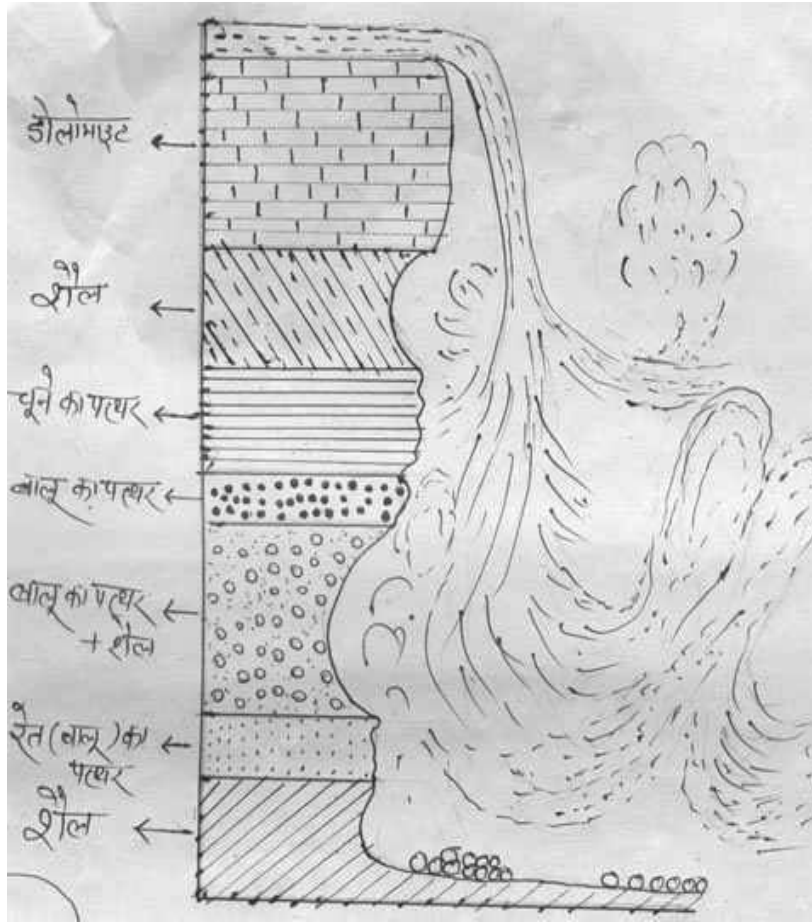 डोलोमाइट
शैल
चूने का पत्थर
बालू का पत्थर
बालू का पत्थर
+ शैल
रेत (बालू) का
पत्थर
शैल